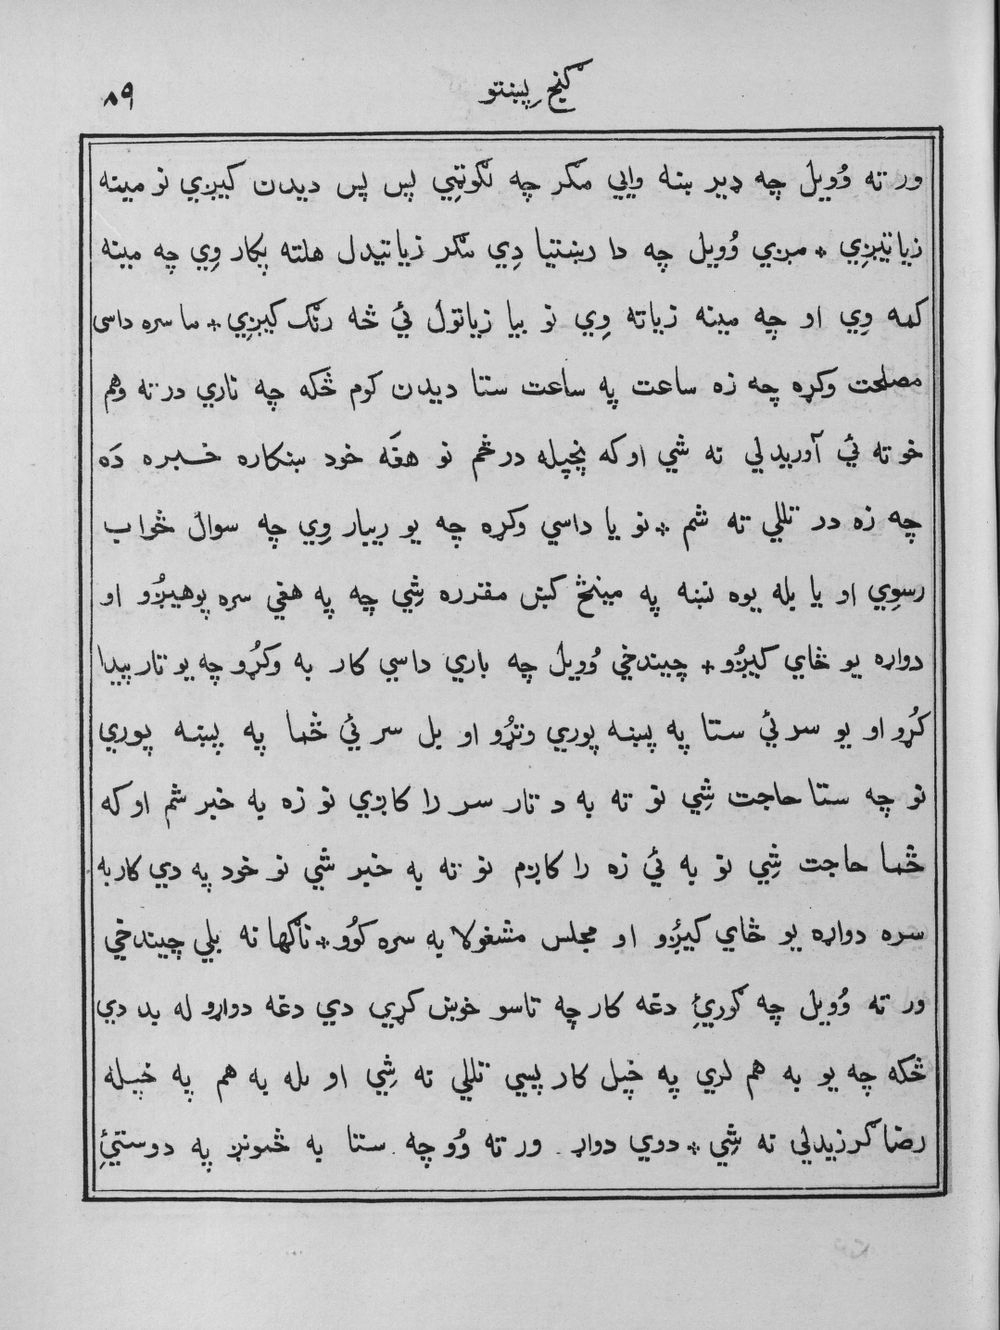 ګنج پښتو
۸۹
ور ته وُويل چه ډير ښه وايي مګر چه لګوټي پس پس ديدن کيږي نو مينه
زياتيږي * مږي وُويل چه دا رښتيا دِي مګر زياتيدل هلته پکار وِي چه مينه
کمه وِي او چه مينه زياته وِي نو بيا زياتول ئې څه رنګ کيږي * ما سره داسی
مصلحت وکړه چه زه ساعت په ساعت ستا ديدن کوم څکه چه ناري درته وهم
خو ته ئې آوريدلي نه شي او که پخپله درځم نو هغه خود ښکاره خبره ده
چه زه در تللي نه شم * نو يا داسي وکړه چه يو ريبار وِي چه سوال ځواب
رسوِي او يا بله يوه نښه په مينځ کښ مقرره شِي چه په هغي سره پوهيږُو او
دواړه يو ځاي کيږُو * چيندخي وُويل چه باري داسي کار به وکړُو چه يو تار پيدا
کړُو او يو سر ئې ستا په پښه پوري وتړُو او بل سر ئې ځما په پښه پوري
نو چه ستا حاجت شِي نو ته به د تار سر را کاږي نو زه به خبر شم او که
ځما حاجت شِي نو به ئې زه را کاږم نو ته به خبر شي نو خود په دي کار به
سره دواړه يو ځاي کيږُو او مجلس مشغولا به سره کوُو * ناګهانه بلي چيندخي
ور ته وُويل چه ګوريئ دغه کار چه تاسو خوښ کړيي دي دغه دواړو له بد دي
ځکه چه يو به هم لري په خپل کار پسي تللي نه شِي او بله به هم په خپله
رضا ګرزيدلي نه شِي * دوي دواړ ور ته وُو چه ستا به ځنونږ په دوستيئ